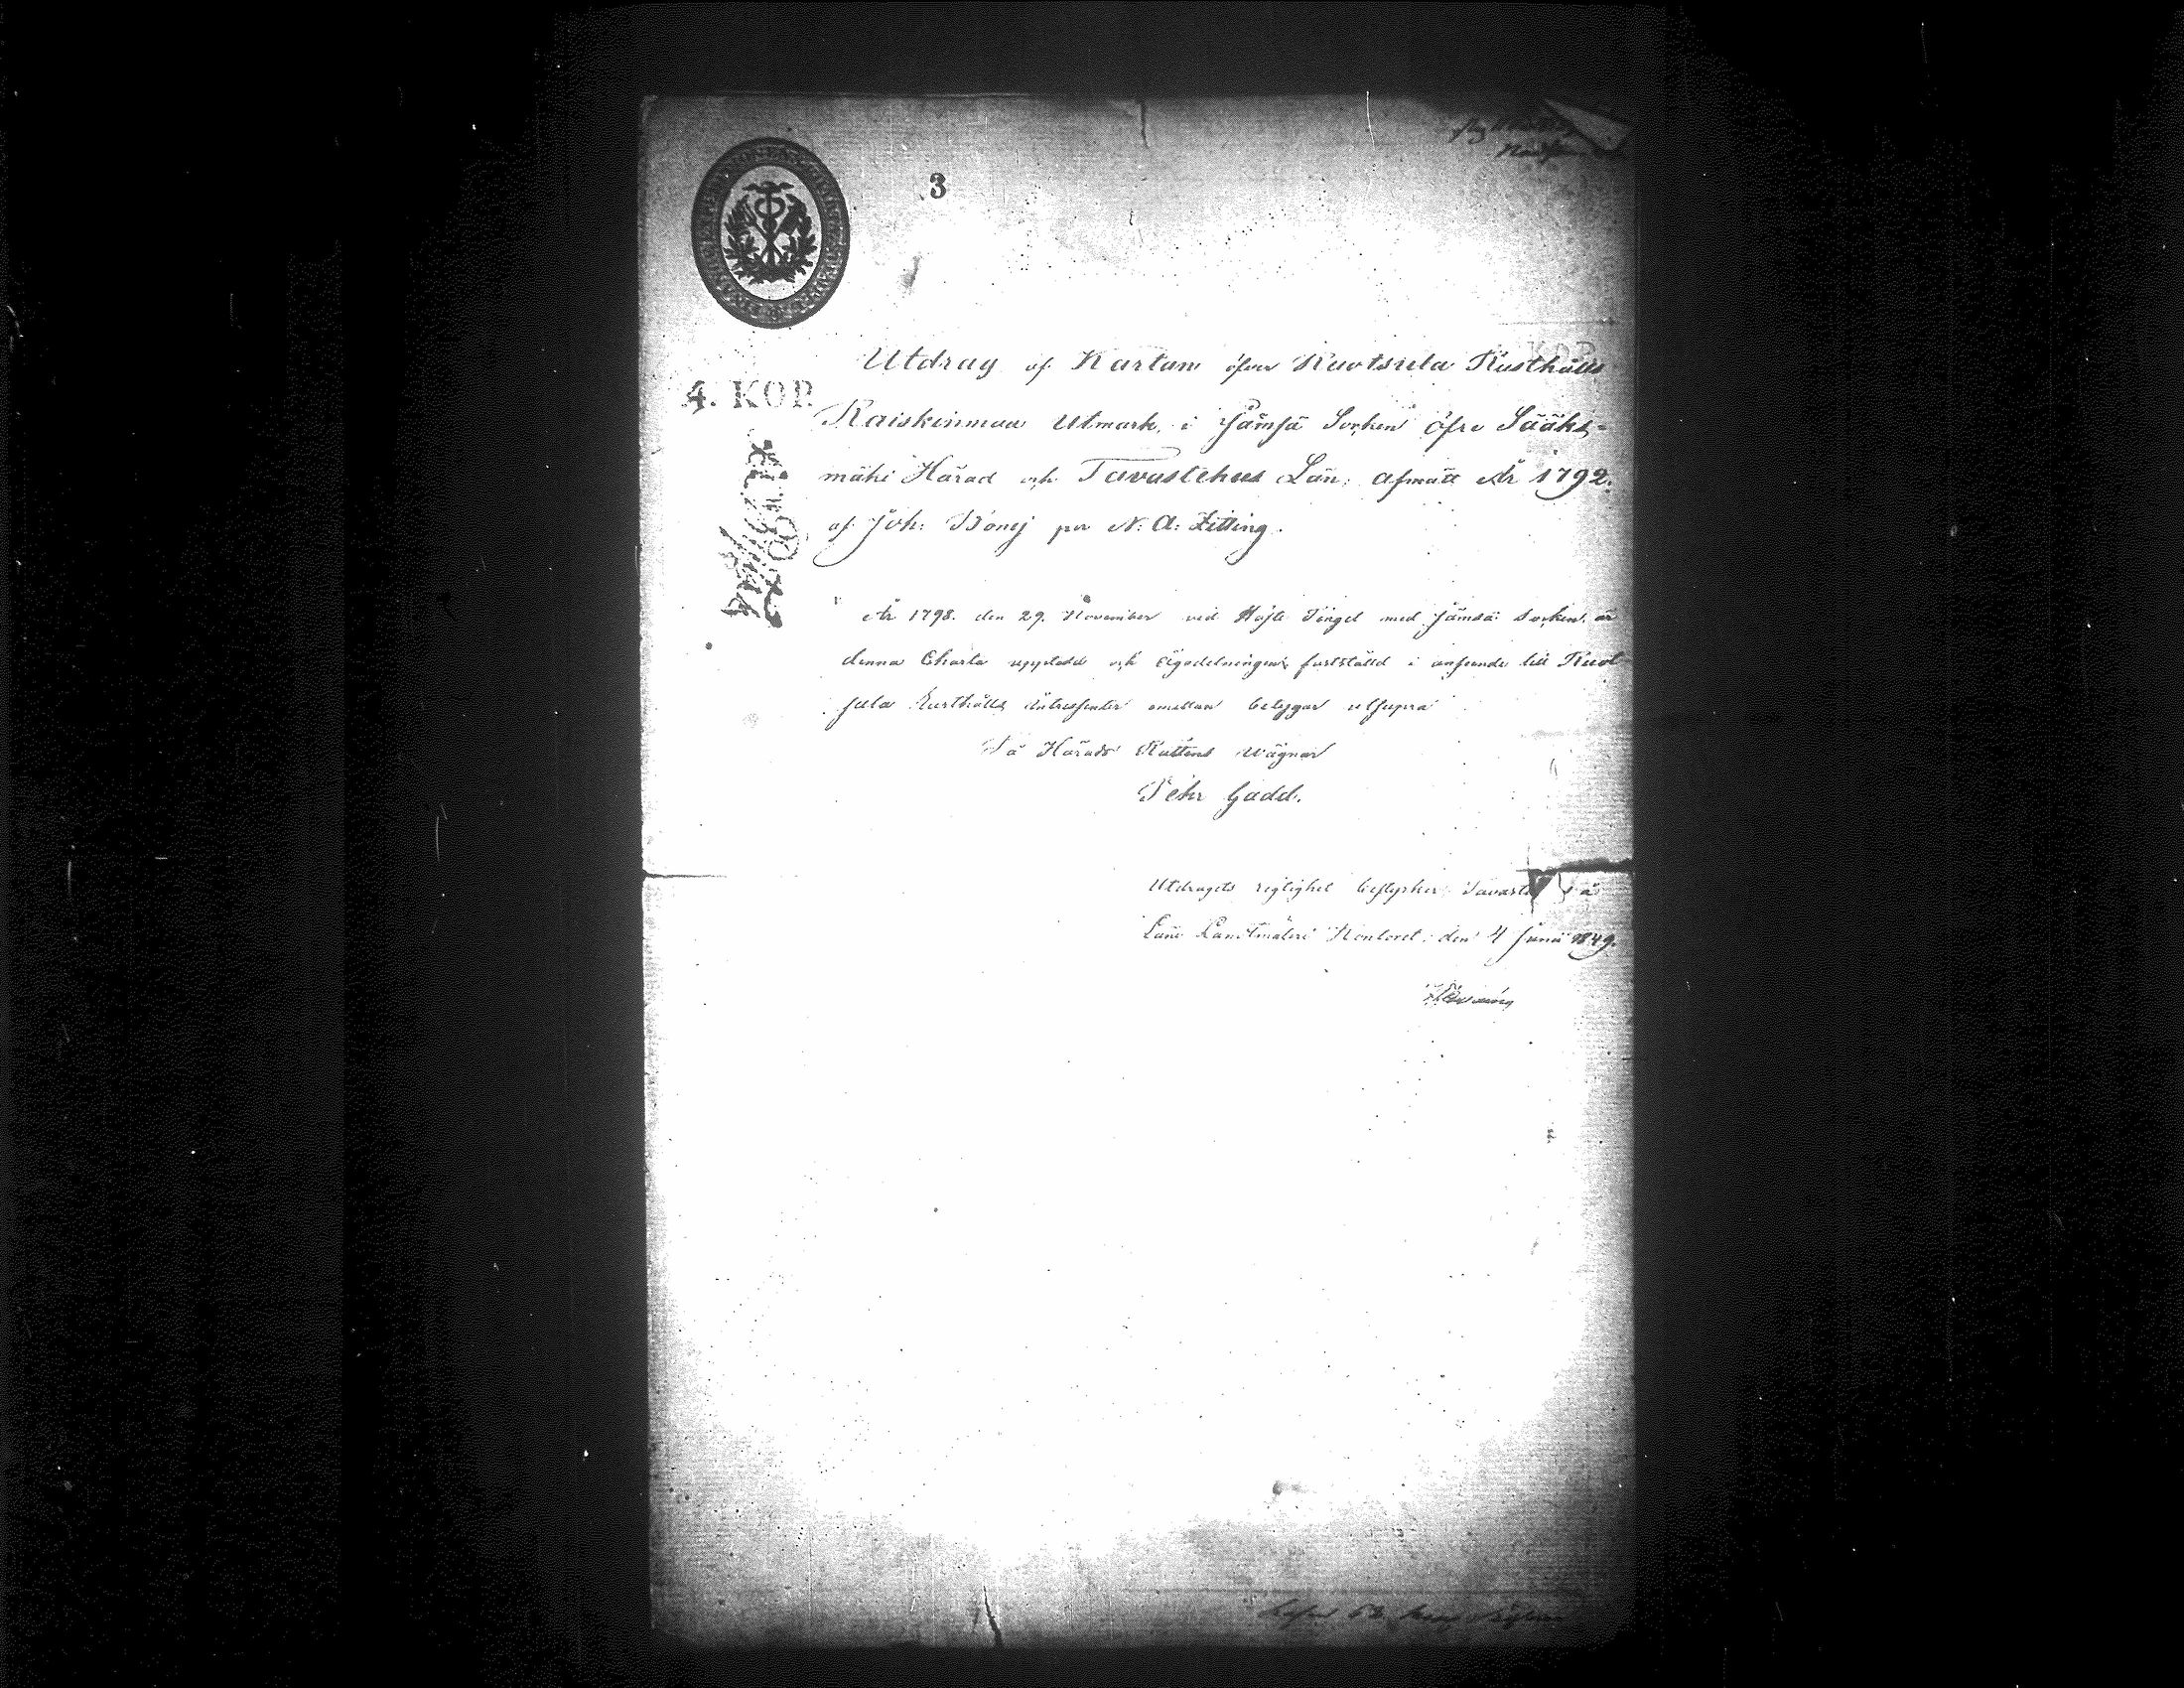 3
Utdrag af Kartan öfver Ruotsula Rusthålls
4. KOP.
Raiskinmaa Utmark, i Jämsä Socken öfre Sääks-
mäki Härad och Tavastehus Län, afmätt År 1792.
af Joh: Bonej per N: A: Zitting.
År 1798. den 29. November vid Höste Tinget med Jämsä Socken, är
denna Charta uppvist och Ägodelningen fastställd i anseende till Ruot-
sula Rusthålls Intressenter emellan betygar utsupra
På Härads Rättens wägnar
Pehr Gadd.
Utdragets rigtighet bestyrker, Tavaste
Läns Landtmäteri Kontoret; den 4 Junii 1849.